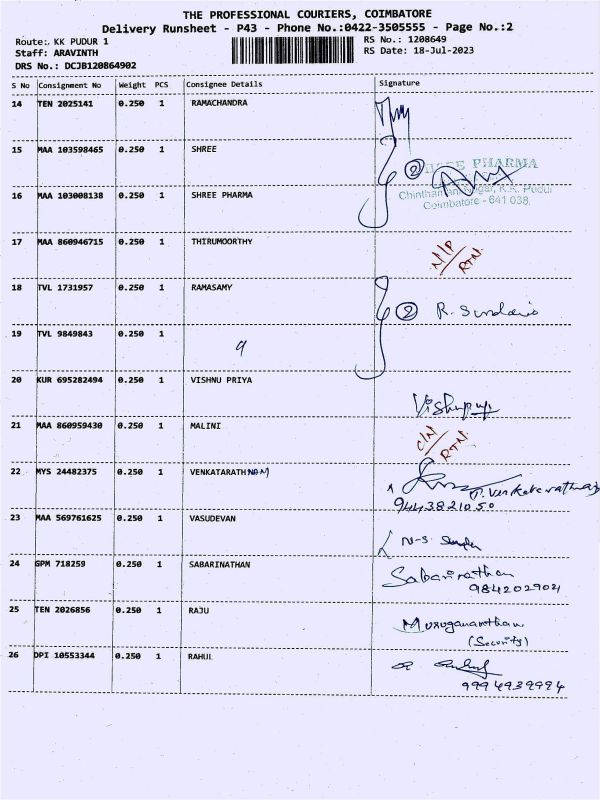 THE PROFESSIONAL COURIERS, COIMBATORE
Delivery Runsheet - P43 - Phone No.:0422-3505555 - Page No.:2
Route: KK PUDUR 1 RS No.: 1208649
Staff: ARAVINTH RS Date: 18-Jul-2023
DRS No.: DCJB120864902
S No Consignment No Weight PCS Consignee Details Signature
14 TEN 2025141 0.250 1 RAMACHANDRA
15 MAA 103598465 0.250 1 SHREE
2 PHARMA
16 MAA 103008138 0.250 1 SHREE PHARMA
Nagar, K.K. Pudur
Coimbatore - 641 038.
17 MAA 860946715 0.250 1 THIRUMOORTHY
N/P
RTN
18 TVL 1731957 0.250 1 RAMASAMY
2 R.
19 TVL 9849843 0.250 1
9
20 KUR 695282494 0.250 1 VISHNU PRIYA
21 MAA 860959430 0.250 1 MALINI
C/N
RTN
22 MYS 24482375 0.250 1 VENKATARATHNAM
9443821050
23 MAA 569761625 0.250 1 VASUDEVAN
N-S.
24 GPM 718259 0.250 1 SABARINATHAN
Sabarinathan
984202904
25 TEN 2026856 0.250 1 RAJU
Muruganantham
(Security)
26 DPI 10553344 0.250 1 RAHUL
9994939994